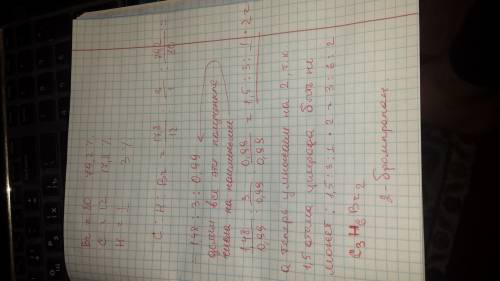 Br = 80 79,2 %
C = 12 17,8 %
H = 1 3 %
C : H : Br = 17,8/12 : 3/1 : 79,2/80 =
= 1,48 : 3 : 0,99
делим все это полученное
числа на наименьшее
1,48/0,99 : 3/0,99 : 0,99/0,99 = 1,5 : 3 : 1 · 2 =
а теперь умножаем на 2, т.к
1,5 атома углерода быть не
может: 1,5 : 3 : 1 · 2 = 3 : 6 : 2
C3H6Br2
2-бромпропан